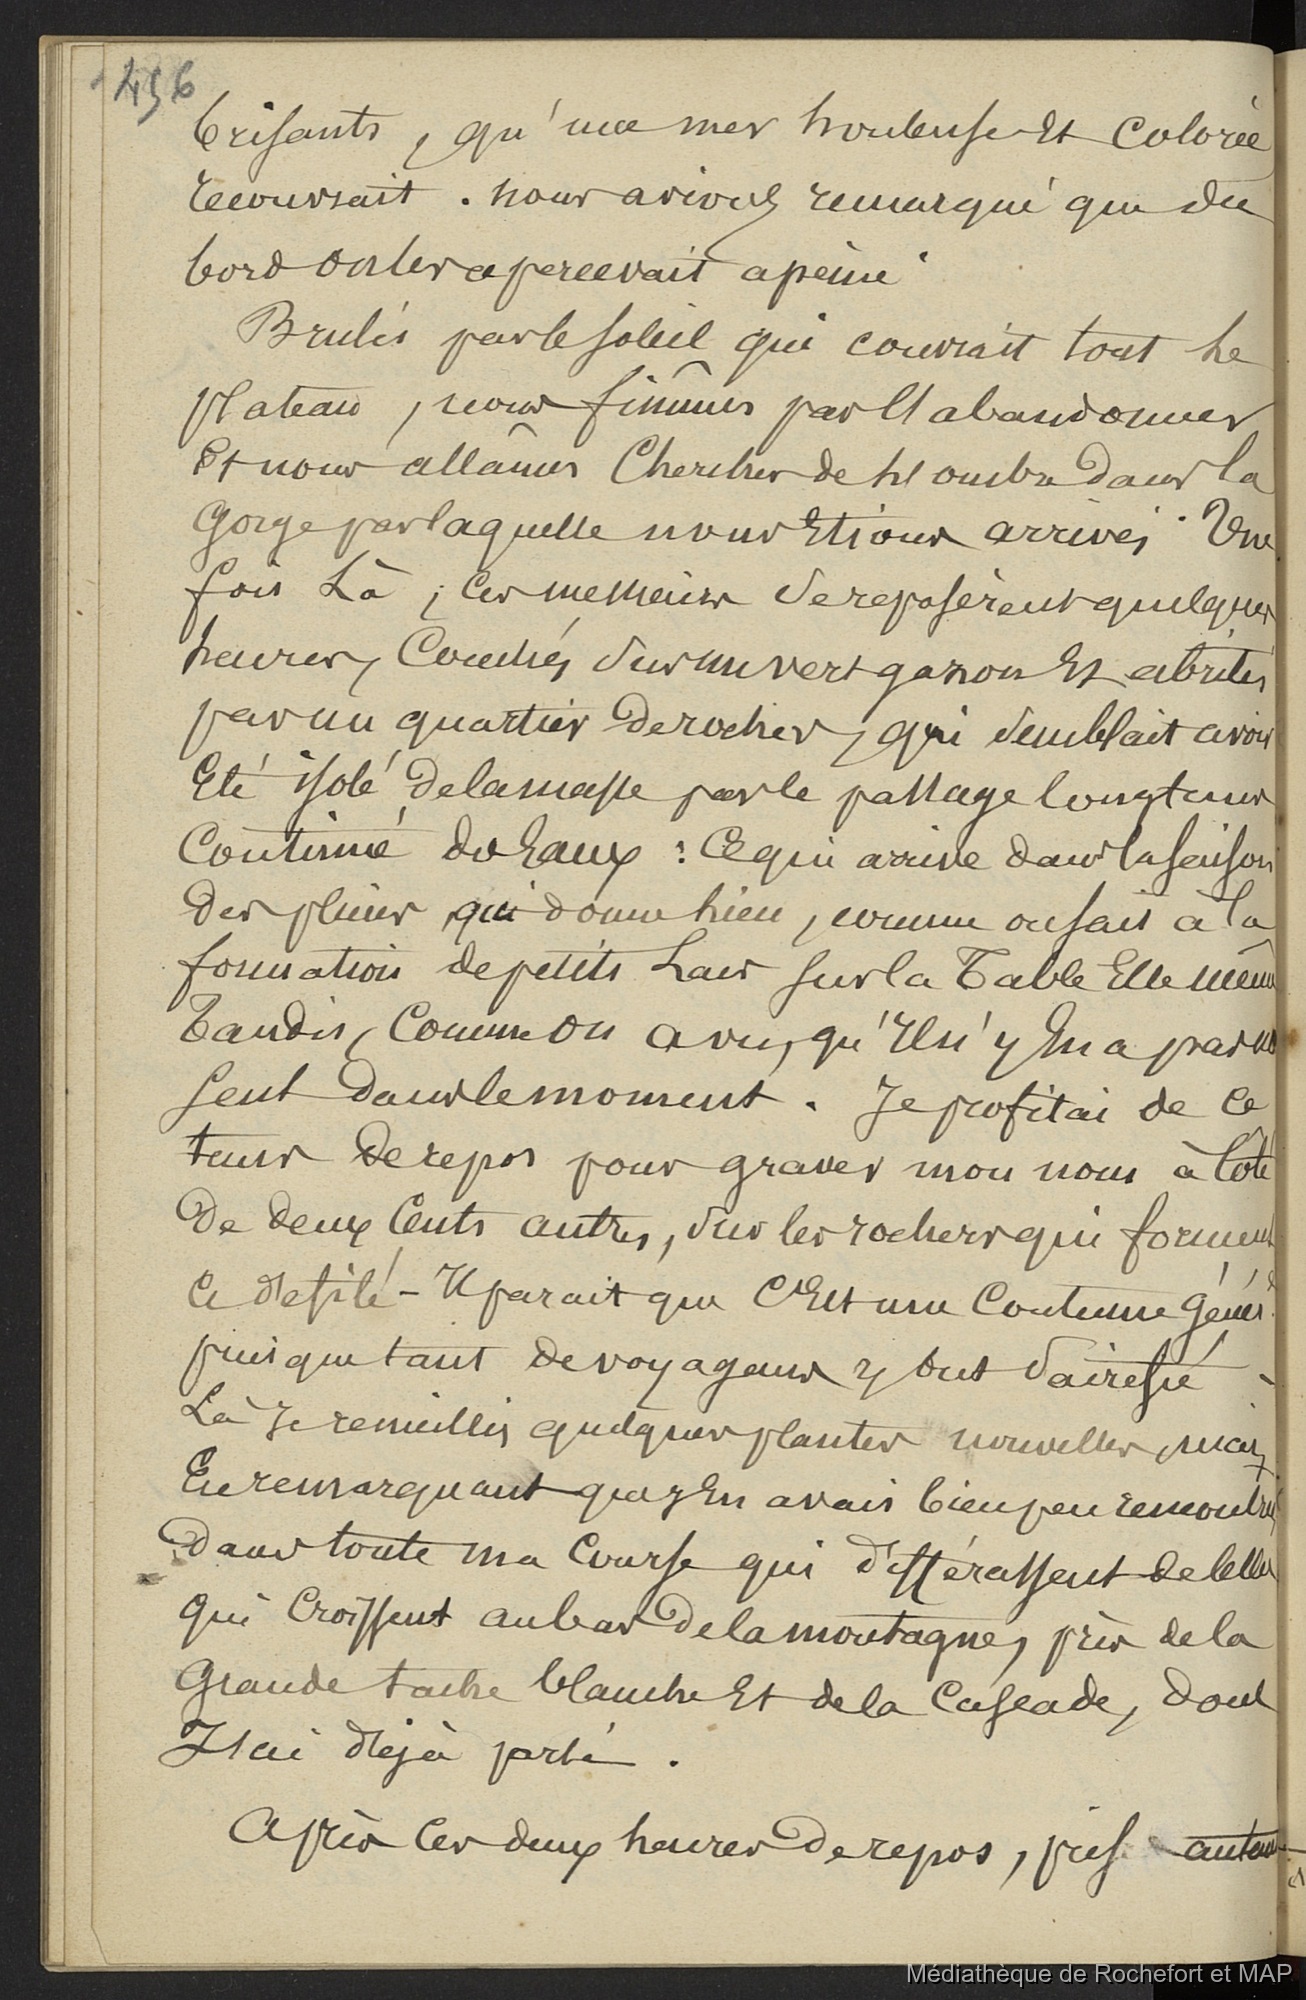 456
brisants, qu'une mer houleuse et colorée
recouvrait. nous avions remarqué que du
bord on les apercevait a peine.
Brulés par le soleil qui couvrait tout le
plateau, nous finîmes par l'abandonner
Et nous allâmes Chercher de l'ombre dans la
gorge par laquelle nous Etions arrivés. Une
fois Là, ces messieurs se reposèrent quelques
heures, Couchés sur un vert gazon Et abrités
par un quartier de rocher, qui semblait avoir
Eté isolé de la masse par le passage longtems
Continué des Eaux : Ce qui arrive dans la saison
des pluies, qui donne lieu, comme on sait à la
formation de petits Lacs sur la Table Elle même
Tandis, Comme on a vu, qu'Il n'y En a pas un
seul dans le moment. Je profitai de ce
tems de repos pour graver mon nom à Côté
De deux Cents autres, sur les rochers qui forment
Ce défilé - Il parait que C'Est une Coutume Génér.
puisque tant de voyageurs y ont satisfié -
Là Je recueillis quelques plantes nouvelles, mais
En remarquant que j'En avais bien peu rencontrées
Dans toute ma Course qui différassent de Celles
qui Croissent au bas de la montagne, près de la
Grande tache blanche Et de la Cascade, dont
J'ai déjà parlé.
Après Ces deux heures de repos, puis autour